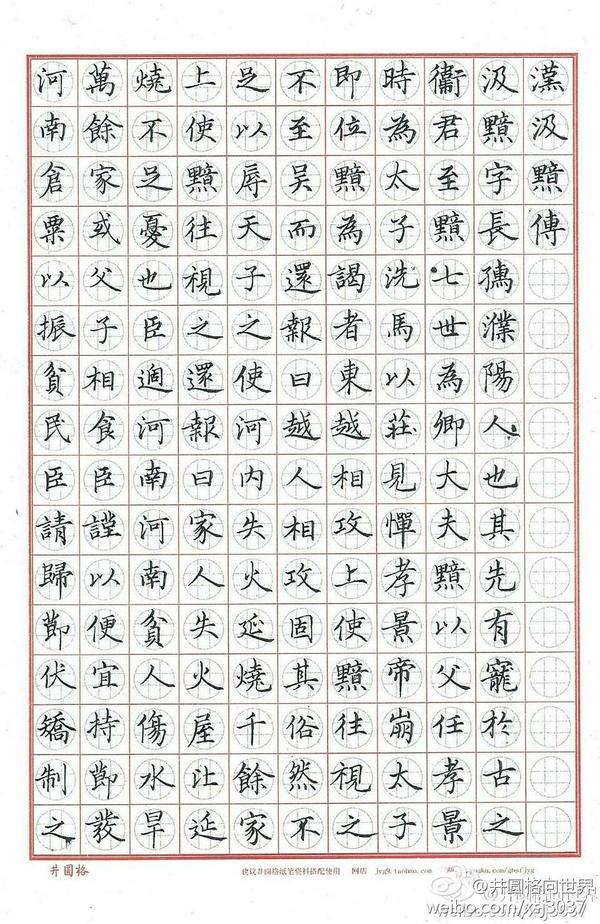 漢汲黯傳
汲黯字長孺濮陽人也其先有寵於古之
衞君至黯七世為卿大夫黯以父任孝景
時為太子洗馬以莊見憚孝景帝崩太子
即位黯為謁者東越相攻上使黯往視之
不至吳而還報曰越人相攻固其俗然不
足以辱天子之使河內失火延燒千餘家
上使黯往視之還報曰家人失火屋比延
燒不足憂也臣過河南河南貧人傷水旱
萬餘家或父子相食臣謹以便宜持節發
河南倉粟以振貧民臣請歸節伏矯制之
井圓格
建议井圓格纸笔资料搭配使用 网店 jyg9.taobao.com
@井圓格向世界
weibo.com/xsj3037